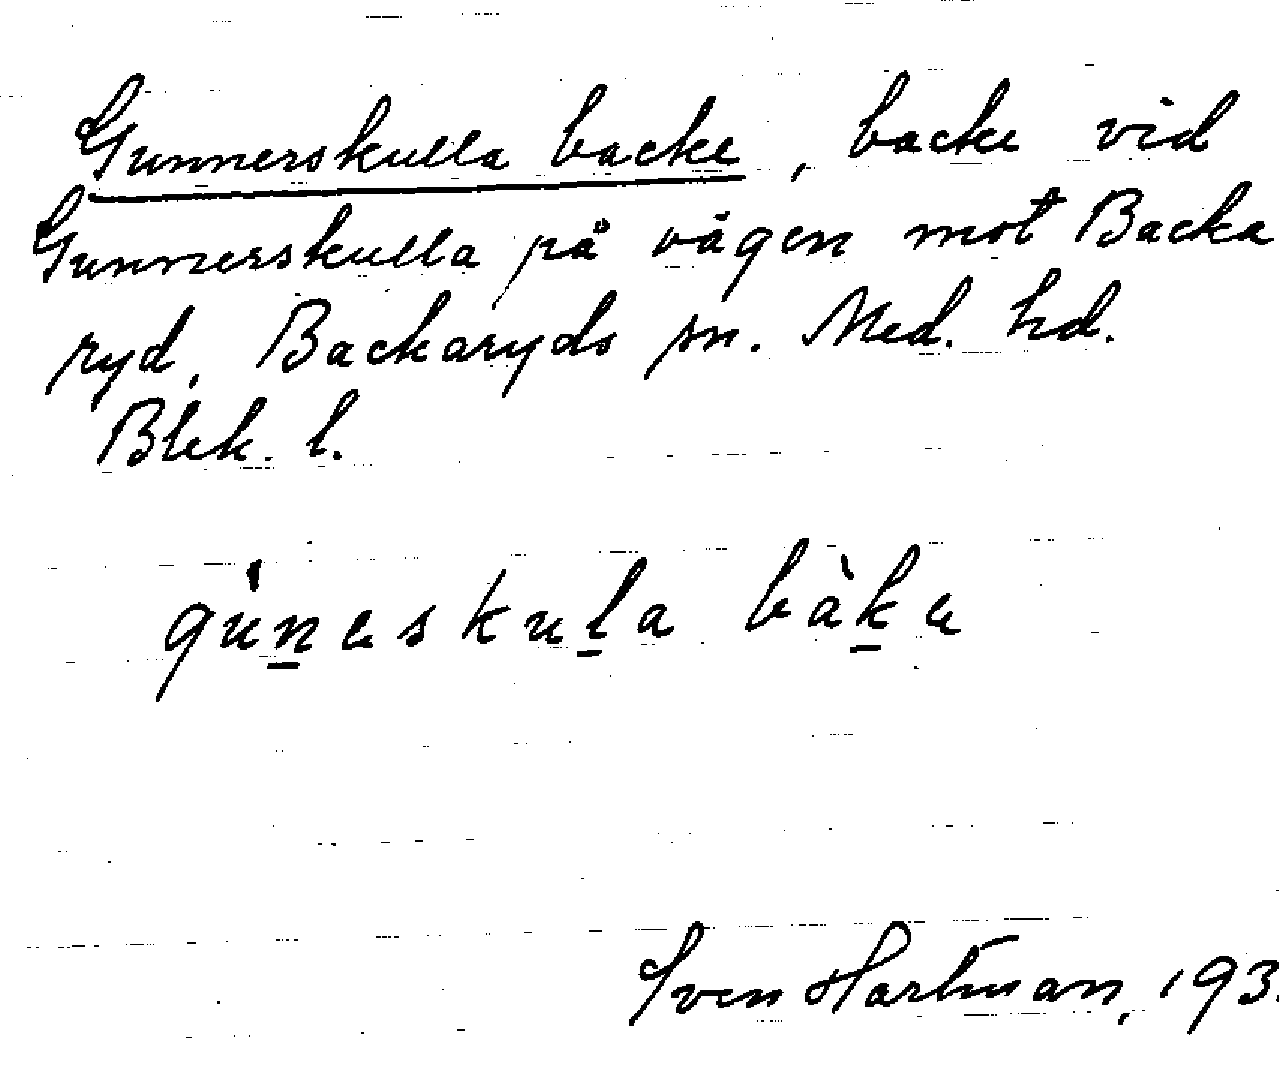 Gunnerskulla backe, backe vid
Gunnerskulla på vägen mot Backa
ryd, Backaryds sn. Med. hd.
Blek. l.
gùn̲eskul̲a bàk̲e
Sven Hartman, 193